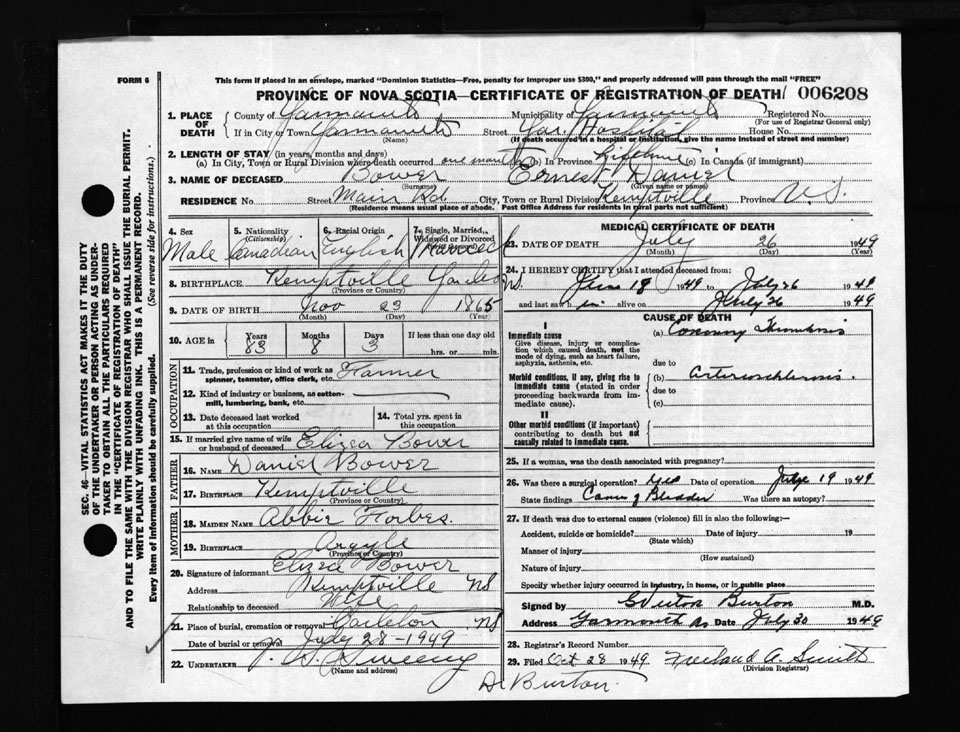 FORM 6
This form if placed in an envelope, marked "Dominion Statistics—Free, penalty for improper use $300," and properly addressed will pass through the mail "FREE"
PROVINCE OF NOVA SCOTIA—CERTIFICATE OF REGISTRATION OF DEATH 006208
SEC. 46—VITAL STATISTICS ACT MAKES IT THE DUTY
OF THE UNDERTAKER OR PERSON ACTING AS UNDER-
TAKER TO OBTAIN ALL THE PARTICULARS REQUIRED
IN THE "CERTIFICATE OF REGISTRATION OF DEATH"
AND TO FILE THE SAME WITH THE DIVISION REGISTRAR WHO SHALL ISSUE THE BURIAL PERMIT.
WRITE PLAINLY WITH UNFADING INK. THIS IS A PERMANENT RECORD.
Every item of information should be carefully supplied. (See reverse side for instructions.)
1. PLACE OF DEATH County of Yarmouth Municipality of Yarmouth Registered No.
(For use of Registrar General only)
If in City or Town Yarmouth Street Yar. Hospital House No.
(Name) (If death occurred in a hospital or institution, give name instead of street and number)
2. LENGTH OF STAY (in years, months and days)
(a) In City, Town or Rural Division where death occurred one month (b) In Province Lifetime (c) In Canada (if immigrant)
3. NAME OF DECEASED Bower Ernest Daniel
(Surname) (Given name or names)
RESIDENCE No. Street Main Rd. City, Town or Rural Division Kemptville Province N.S.
(Residence means usual place of abode. Post Office Address for residents in rural parts not sufficient)
4. Sex 5. Nationality (Citizenship) 6. Racial Origin 7. Single, Married, Widowed or Divorced
Male Canadian English Married
8. BIRTHPLACE Kemptville Yar. Co N.S.
(Province or Country)
9. DATE OF BIRTH Nov 23 1865
(Month) (Day) (Year)
10. AGE in Years Months Days If less than one day old
83 8 3 hrs. or min.
OCCUPATION
11. Trade, profession or kind of work as spinner, teamster, office clerk, etc. Farmer
12. Kind of industry or business, as cotton-mill, lumbering, bank, etc.
13. Date deceased last worked at this occupation 14. Total yrs. spent in this occupation
15. If married give name of wife or husband of deceased Eliza Bower
FATHER
16. NAME Daniel Bower
17. BIRTHPLACE Kemptville
(Province or Country)
MOTHER
18. MAIDEN NAME Abbie Forbes.
19. BIRTHPLACE Argyle
(Province or Country)
20. Signature of informant Eliza Bower
Address Kemptville NS
Relationship to deceased Wife
21. Place of burial, cremation or removal Carleton NS
Date of burial or removal July 28 - 1949
22. UNDERTAKER Sweeny
(Name and address)
MEDICAL CERTIFICATE OF DEATH
23. DATE OF DEATH July 26 1949
(Month) (Day) (Year)
24. I HEREBY CERTIFY that I attended deceased from:
June 18 1949 to July 26 1949
and last saw him alive on July 26 1949
CAUSE OF DEATH
I
Immediate cause
Give disease, injury or complication which caused death, not the mode of dying, such as heart failure, asphyxia, asthenia, etc.
(a) Coronary Thrombosis
due to
Morbid conditions, if any, giving rise to immediate cause (stated in order proceeding backwards from immediate cause).
(b) Arteriosclerosis.
due to
(c)
II
Other morbid conditions (if important) contributing to death but not causally related to immediate cause.
25. If a woman, was the death associated with pregnancy?
26. Was there a surgical operation? Yes Date of operation July 19 1949
State findings Cancer of Bladder Was there an autopsy?
27. If death was due to external causes (violence) fill in also the following:—
Accident, suicide or homicide? Date of injury 19
(State which)
Manner of injury
(How sustained)
Nature of injury
Specify whether injury occurred in industry, in home, or in public place
Signed by Burton M.D.
Address Yarmouth NS Date July 30 1949
28. Registrar's Record Number
29. Filed Oct 28 1949 Freeland A. Smith
(Division Registrar)
D. Burton.